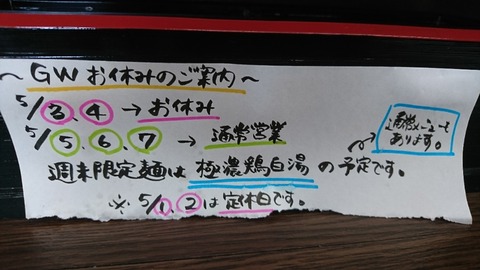 ～GWお休みのご案内～
5/3、4→お休み
5/5、6、7→通常営業
通常メニューも
あります。
週末限定麺は極濃鶏白湯の予定です。
※5/1、2は定休日です。